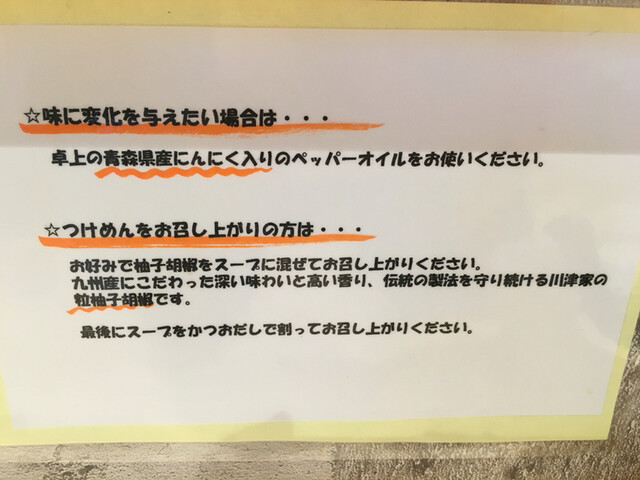 ☆味に変化を与えたい場合は・・・
卓上の青森県産にんにく入りのペッパーオイルをお使いください。
☆つけめんをお召し上がりの方は・・・
お好みで柚子胡椒をスープに混ぜてお召し上がりください。
九州産にこだわった深い味わいと高い香り、伝統の製法を守り続ける川津家の
粒柚子胡椒です。
最後にスープをかつおだしで割ってお召し上がりください。